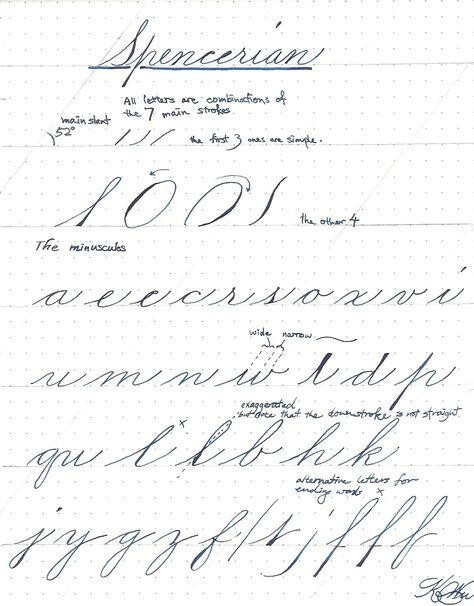 Spencerian
All letters are combinations of
the 7 main strokes.
main slant
52°
the first 3 ones are simple.
the other 4
The minuscules
a e e c r s o x v i
wide narrow
u m n w t d p
exaggerated
but note that the downstroke is not straight
qu l x l b h k
alternative letters for
ending words x
j y g z f ( t ) f f f